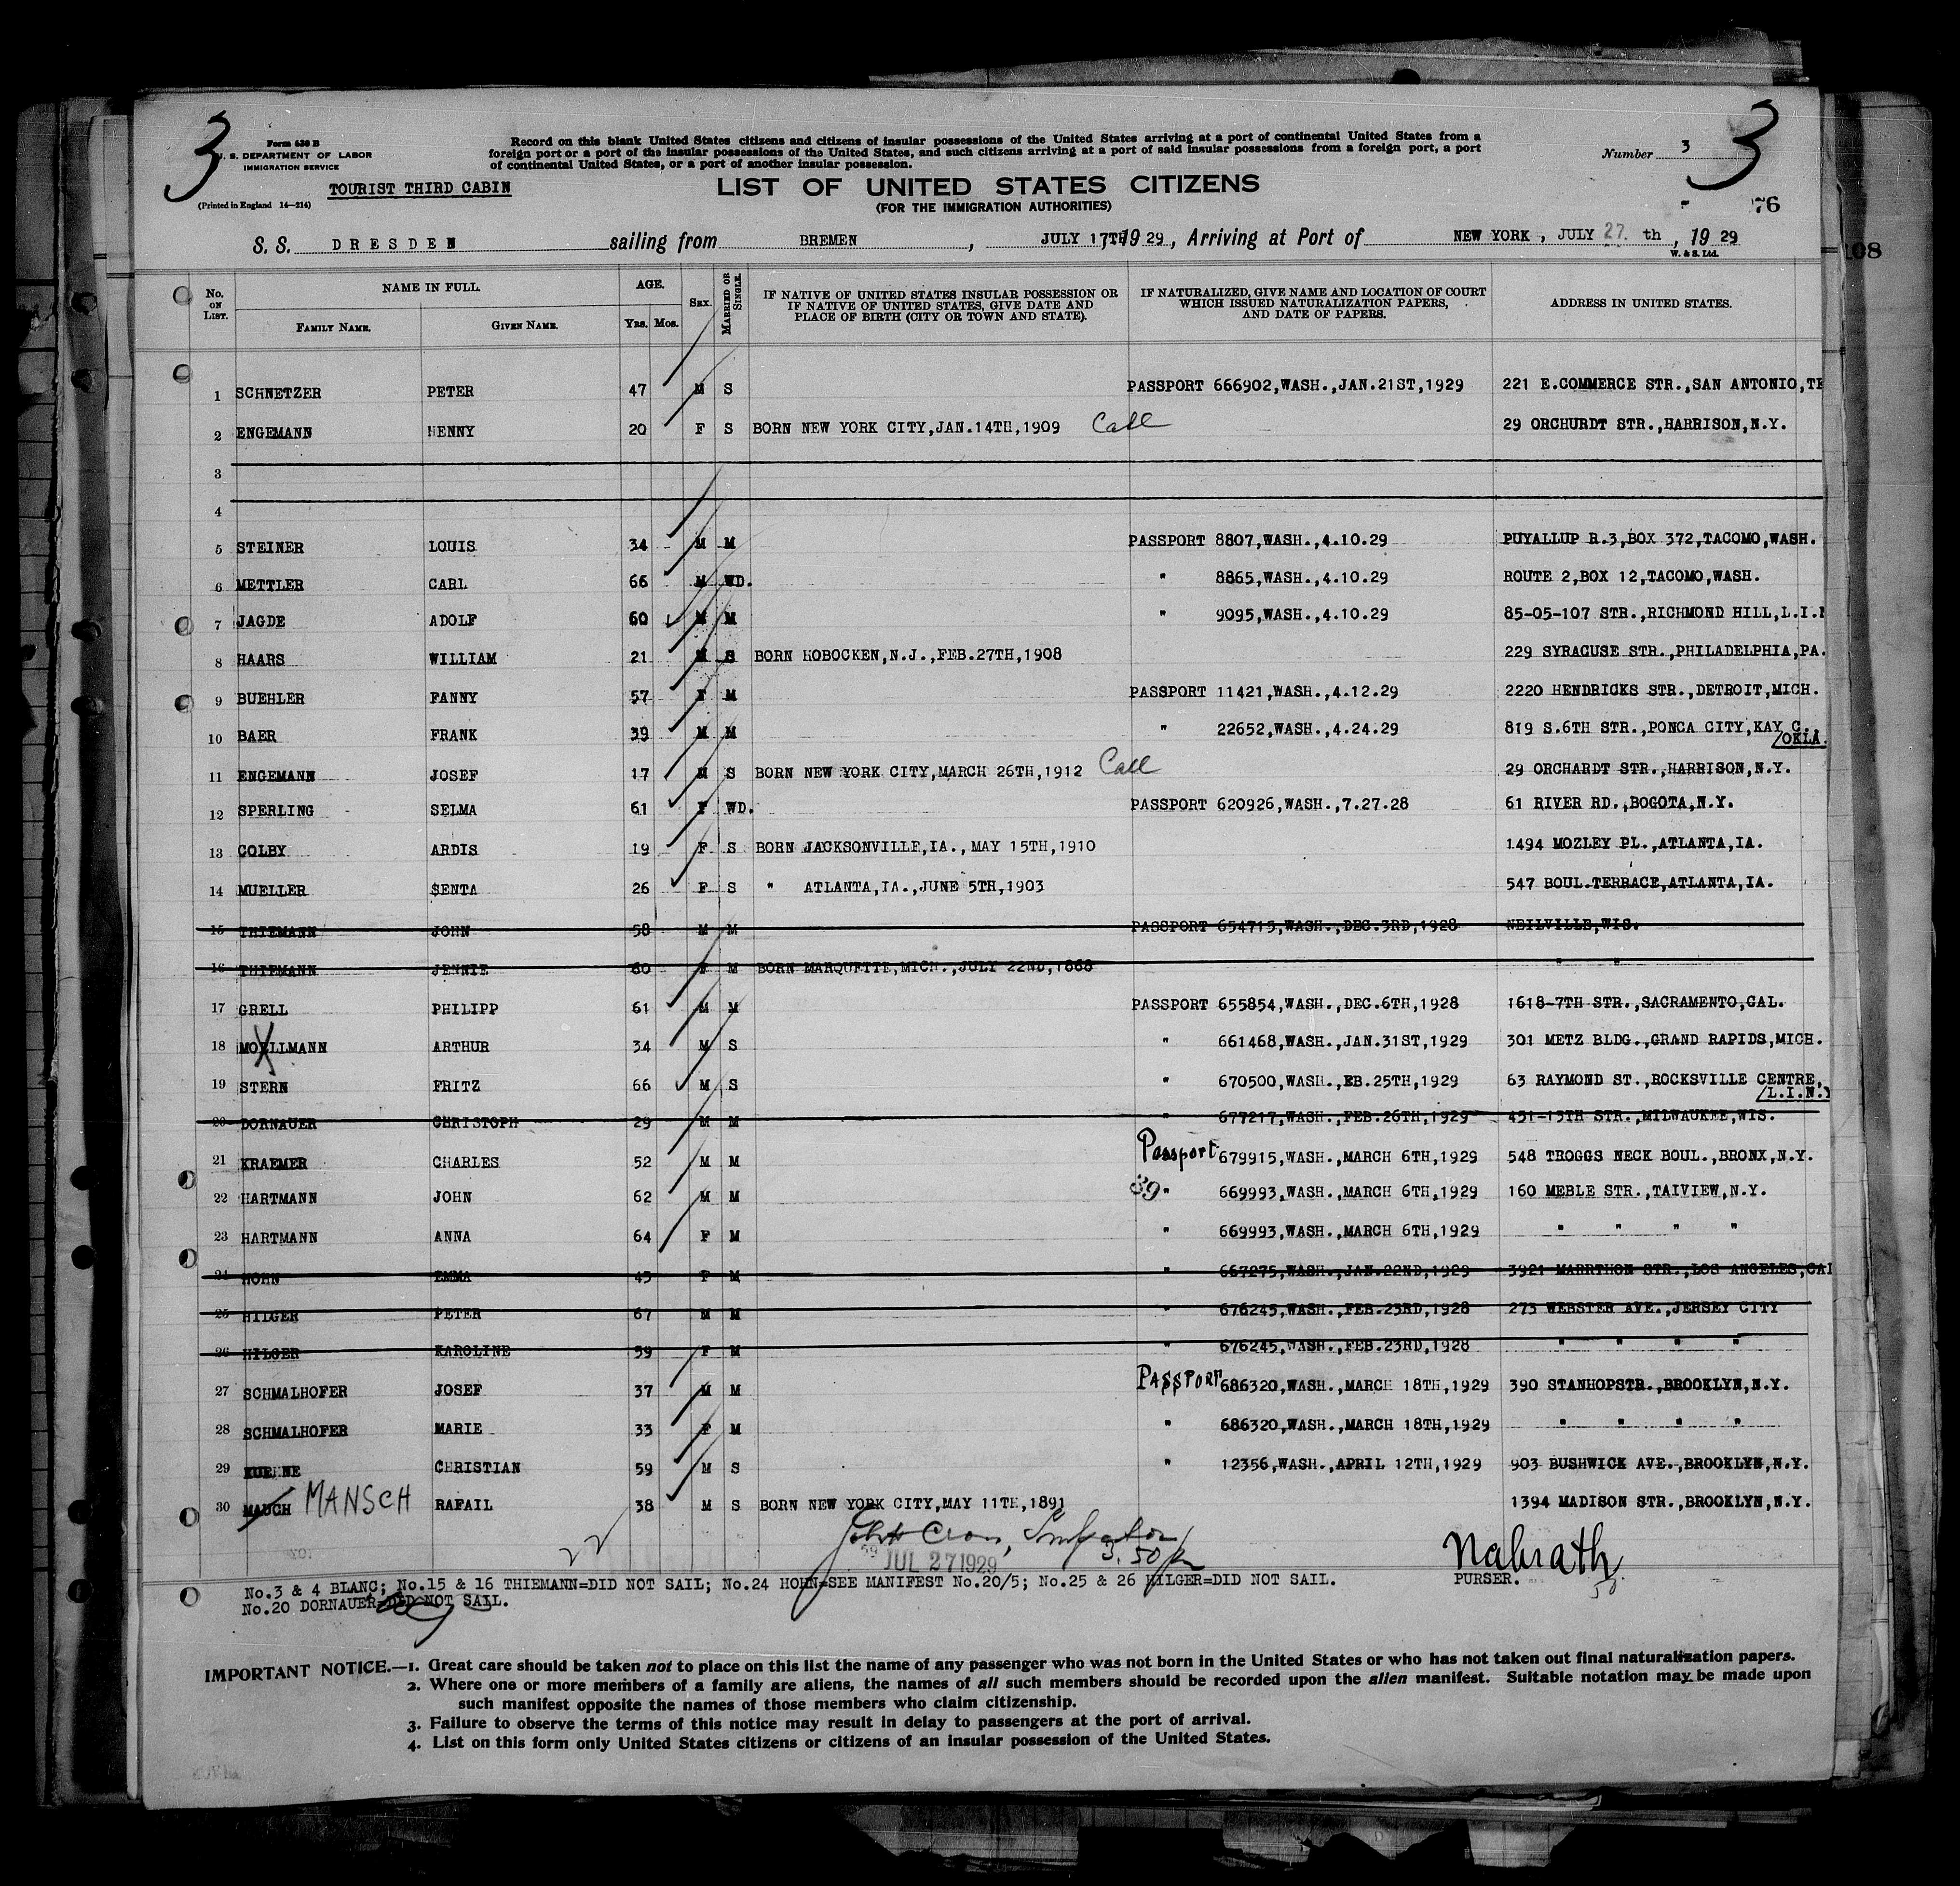 3
Form 630 B
U. S. DEPARTMENT OF LABOR
IMMIGRATION SERVICE
(Printed in England 14—214)
TOURIST THIRD CABIN
Record on this blank United States citizens and citizens of insular possessions of the United States arriving at a port of continental United States from a
foreign port or a port of the insular possessions of the United States, and such citizens arriving at a port of said insular possessions from a foreign port, a port
of continental United States, or a port of another insular possession.
LIST OF UNITED STATES CITIZENS
(FOR THE IMMIGRATION AUTHORITIES)
Number 3
3
76
108
S. S. DRESDEN sailing from BREMEN, JULY 17TH 1929, Arriving at Port of NEW YORK, JULY 27.th, 1929
W. & S. Ltd.
No. ON LIST. NAME IN FULL. FAMILY NAME. GIVEN NAME. AGE. YRS. MOS. SEX. MARRIED OR SINGLE. IF NATIVE OF UNITED STATES INSULAR POSSESSION OR IF NATIVE OF UNITED STATES, GIVE DATE AND PLACE OF BIRTH (CITY OR TOWN AND STATE). IF NATURALIZED, GIVE NAME AND LOCATION OF COURT WHICH ISSUED NATURALIZATION PAPERS, AND DATE OF PAPERS. ADDRESS IN UNITED STATES.
1 SCHNETZER PETER 47 M S PASSPORT 666902,WASH.,JAN.21ST,1929 221 E.COMMERCE STR.,SAN ANTONIO,TE
2 ENGEMANN HENNY 20 F S BORN NEW YORK CITY,JAN.14TH,1909 Call 29 ORCHURDT STR.,HARRISON,N.Y.
3
4
5 STEINER LOUIS 34 M M PASSPORT 8807,WASH.,4.10.29 PUYALLUP R.3,BOX 372,TACOMO,WASH.
6 METTLER CARL 66 M WD. " 8865,WASH.,4.10.29 ROUTE 2,BOX 12,TACOMO,WASH.
7 JAGDE ADOLF 60 M M " 9095,WASH.,4.10.29 85-05-107 STR.,RICHMOND HILL,L.I.N
8 HAARS WILLIAM 21 M S BORN HOBOCKEN,N.J.,FEB.27TH,1908 229 SYRACUSE STR.,PHILADELPHIA,PA.
9 BUEHLER FANNY 57 F M PASSPORT 11421,WASH.,4.12.29 2220 HENDRICKS STR.,DETROIT,MICH.
10 BAER FRANK 39 M M " 22652,WASH.,4.24.29 819 S.6TH STR.,PONCA CITY,KAY C.,
/OKLA.
11 ENGEMANN JOSEF 17 M S BORN NEW YORK CITY,MARCH 26TH,1912 Call 29 ORCHARDT STR.,HARRISON,N.Y.
12 SPERLING SELMA 61 F WD. PASSPORT 620926,WASH.,7.27.28 61 RIVER RD.,BOGOTA,N.Y.
13 COLBY ARDIS 19 F S BORN JACKSONVILLE,IA.,MAY 15TH,1910 1494 MOZLEY PL.,ATLANTA,IA.
14 MUELLER SENTA 26 F S " ATLANTA,IA.,JUNE 5TH,1903 547 BOUL.TERRACE,ATLANTA,IA.
15 THIEMANN JOHN 58 M M PASSPORT 654715,WASH.,DEC.3RD,1928 NEILVILLE,WIS.
16 THIEMANN JENNIE 60 F M BORN MARQUETTE,MICH.,JULY 22ND,1868 " "
17 GRELL PHILIPP 61 M M PASSPORT 655854,WASH.,DEC.6TH,1928 1618-7TH STR.,SACRAMENTO,CAL.
18 MOELLMANN ARTHUR 34 M S " 661468,WASH.,JAN.31ST,1929 301 METZ BLDG.,GRAND RAPIDS,MICH.
19 STERN FRITZ 66 M S " 670500,WASH.,EB.25TH,1929 63 RAYMOND ST.,ROCKSVILLE CENTRE,
/L.I.N.Y
20 DORNAUER CHRISTOPH 29 M M " 677217,WASH.,FEB.26TH,1929 451-15TH STR.,MILWAUKEE,WIS.
21 KRAEMER CHARLES 52 M M Passport 679915,WASH.,MARCH 6TH,1929 548 TROGGS NECK BOUL.,BRONX,N.Y.
22 HARTMANN JOHN 62 M M 39 " 669993,WASH.,MARCH 6TH,1929 160 MEBLE STR.,TAIVIEW,N.Y.
23 HARTMANN ANNA 64 F M " 669993,WASH.,MARCH 6TH,1929 " " " "
24 HOHN EMMA 45 F M " 667275,WASH.,JAN.22ND,1929 3921 MARRTHON STR.,LOS ANGELES,CAL
25 HILGER PETER 67 M M " 676245,WASH.,FEB.23RD,1928 273 WEBSTER AVE.,JERSEY CITY
26 HILGER KAROLINE 59 F M " 676245,WASH.,FEB.23RD,1928 " " " "
27 SCHMALHOFER JOSEF 37 M M PASSPORT 686320,WASH.,MARCH 18TH,1929 390 STANHOPSTR.,BROOKLYN,N.Y.
28 SCHMALHOFER MARIE 33 F M " 686320,WASH.,MARCH 18TH,1929 " " " "
29 KUEHNE CHRISTIAN 59 M S " 12356,WASH.,APRIL 12TH,1929 903 BUSHWICK AVE.,BROOKLYN,N.Y.
30 MAUCH MANSCH RAFAIL 38 M S BORN NEW YORK CITY,MAY 11TH,1891 1394 MADISON STR.,BROOKLYN,N.Y.
22
JUL 27 1929
Nabrath
PURSER.
No.3 & 4 BLANC; No.15 & 16 THIEMANN=DID NOT SAIL; No.24 HOHN=SEE MANIFEST No.20/5; No.25 & 26 HILGER=DID NOT SAIL.
No.20 DORNAUER=DID NOT SAIL.
IMPORTANT NOTICE.—1. Great care should be taken not to place on this list the name of any passenger who was not born in the United States or who has not taken out final naturalization papers.
2. Where one or more members of a family are aliens, the names of all such members should be recorded upon the alien manifest. Suitable notation may be made upon
such manifest opposite the names of those members who claim citizenship.
3. Failure to observe the terms of this notice may result in delay to passengers at the port of arrival.
4. List on this form only United States citizens or citizens of an insular possession of the United States.